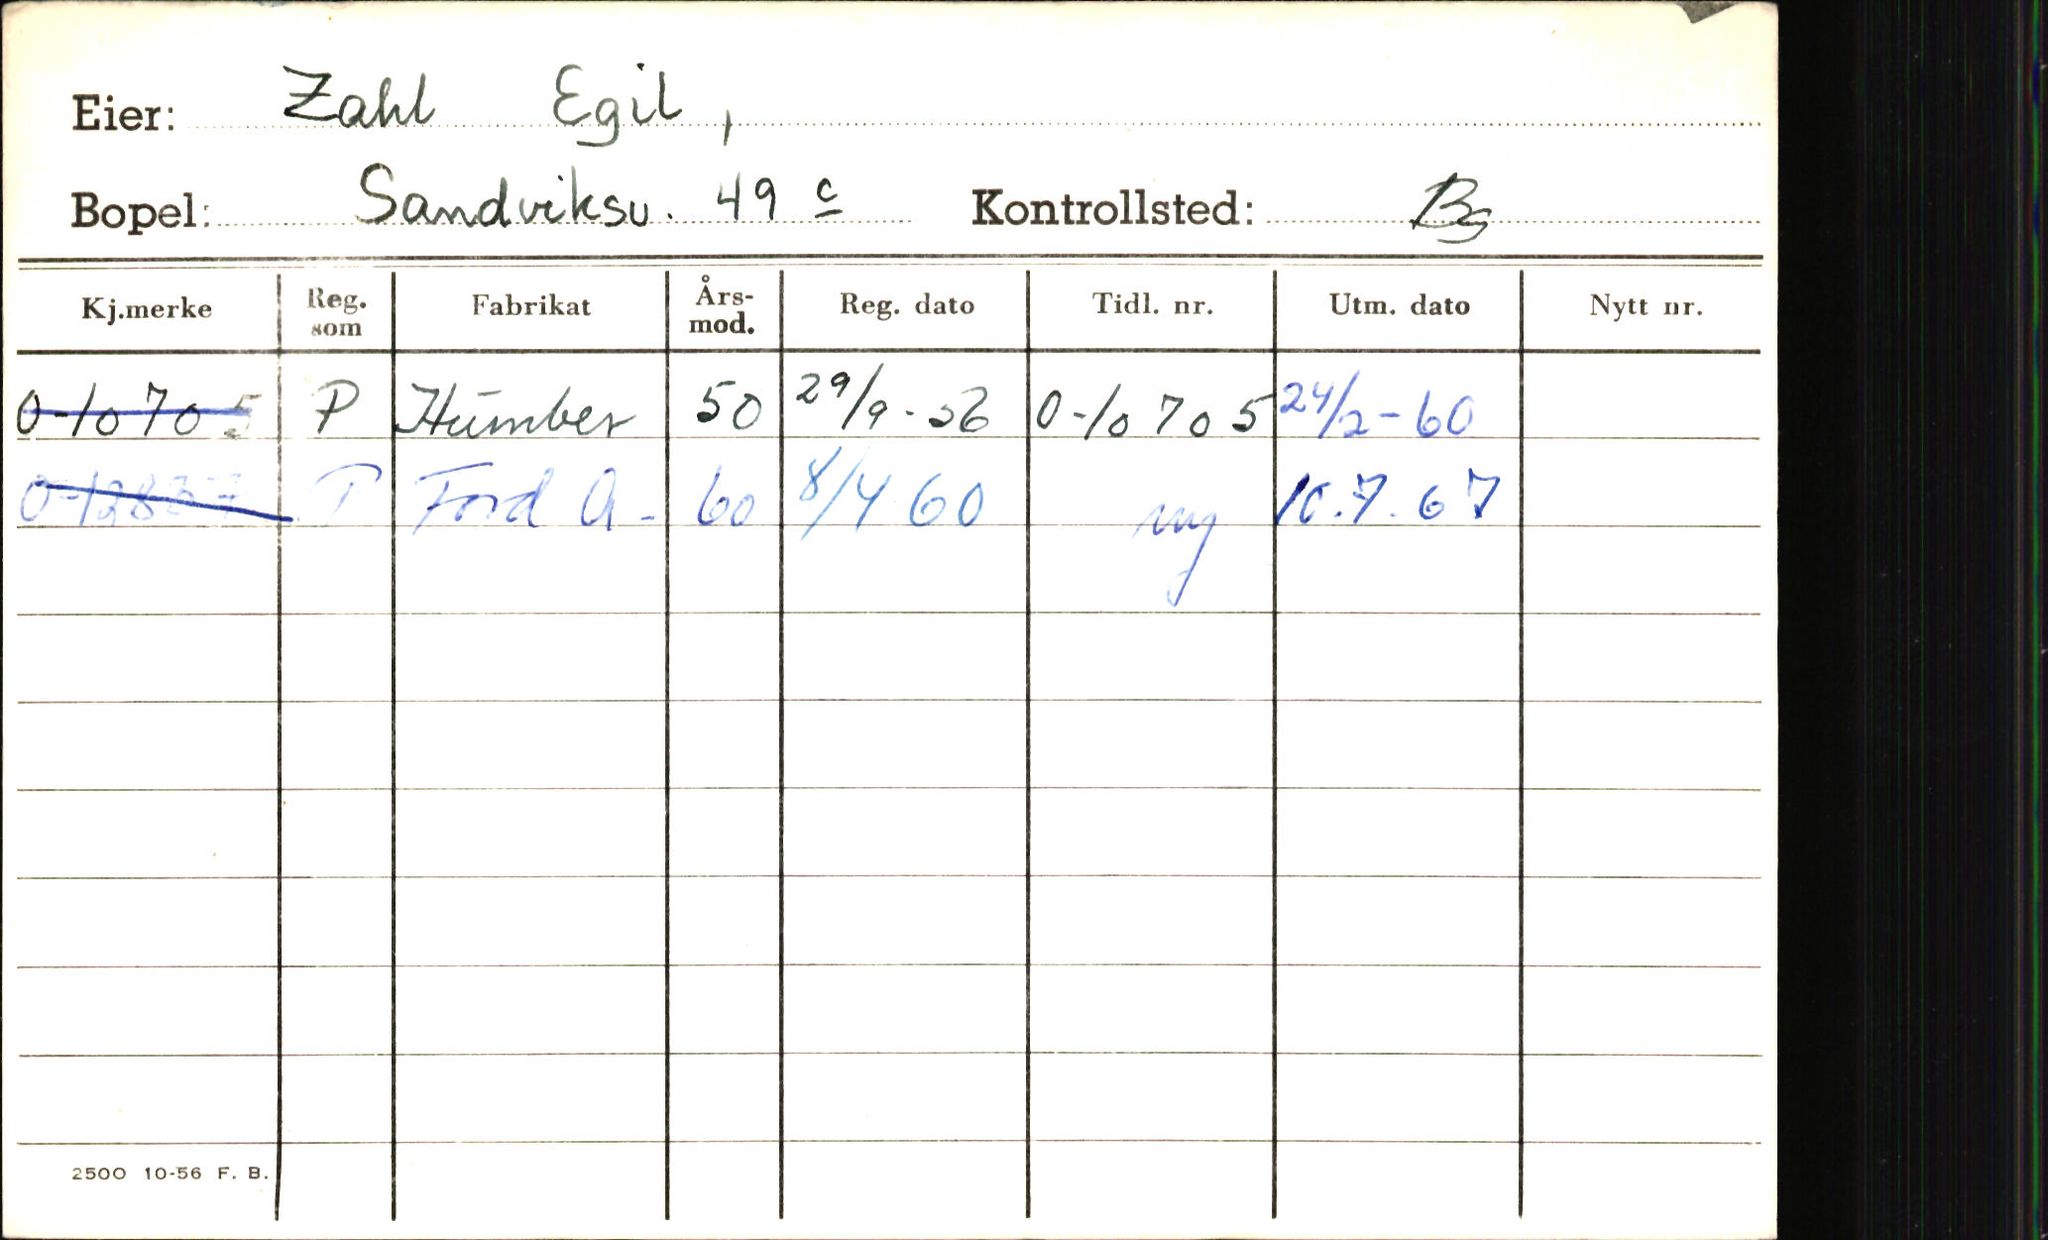 Eier: Zahl Egil,
Bopel: Sandviksv. 49 c Kontrollsted: Bg
Kj.merke Reg. som Fabrikat Års-mod. Reg. dato Tidl. nr. Utm. dato Nytt nr.
O-10705 P Humber 50 29/9-56 O-10705 24/2-60
P Ford A- 60 8/4 60 ny 10.7.67
2500 10-56 F. B.